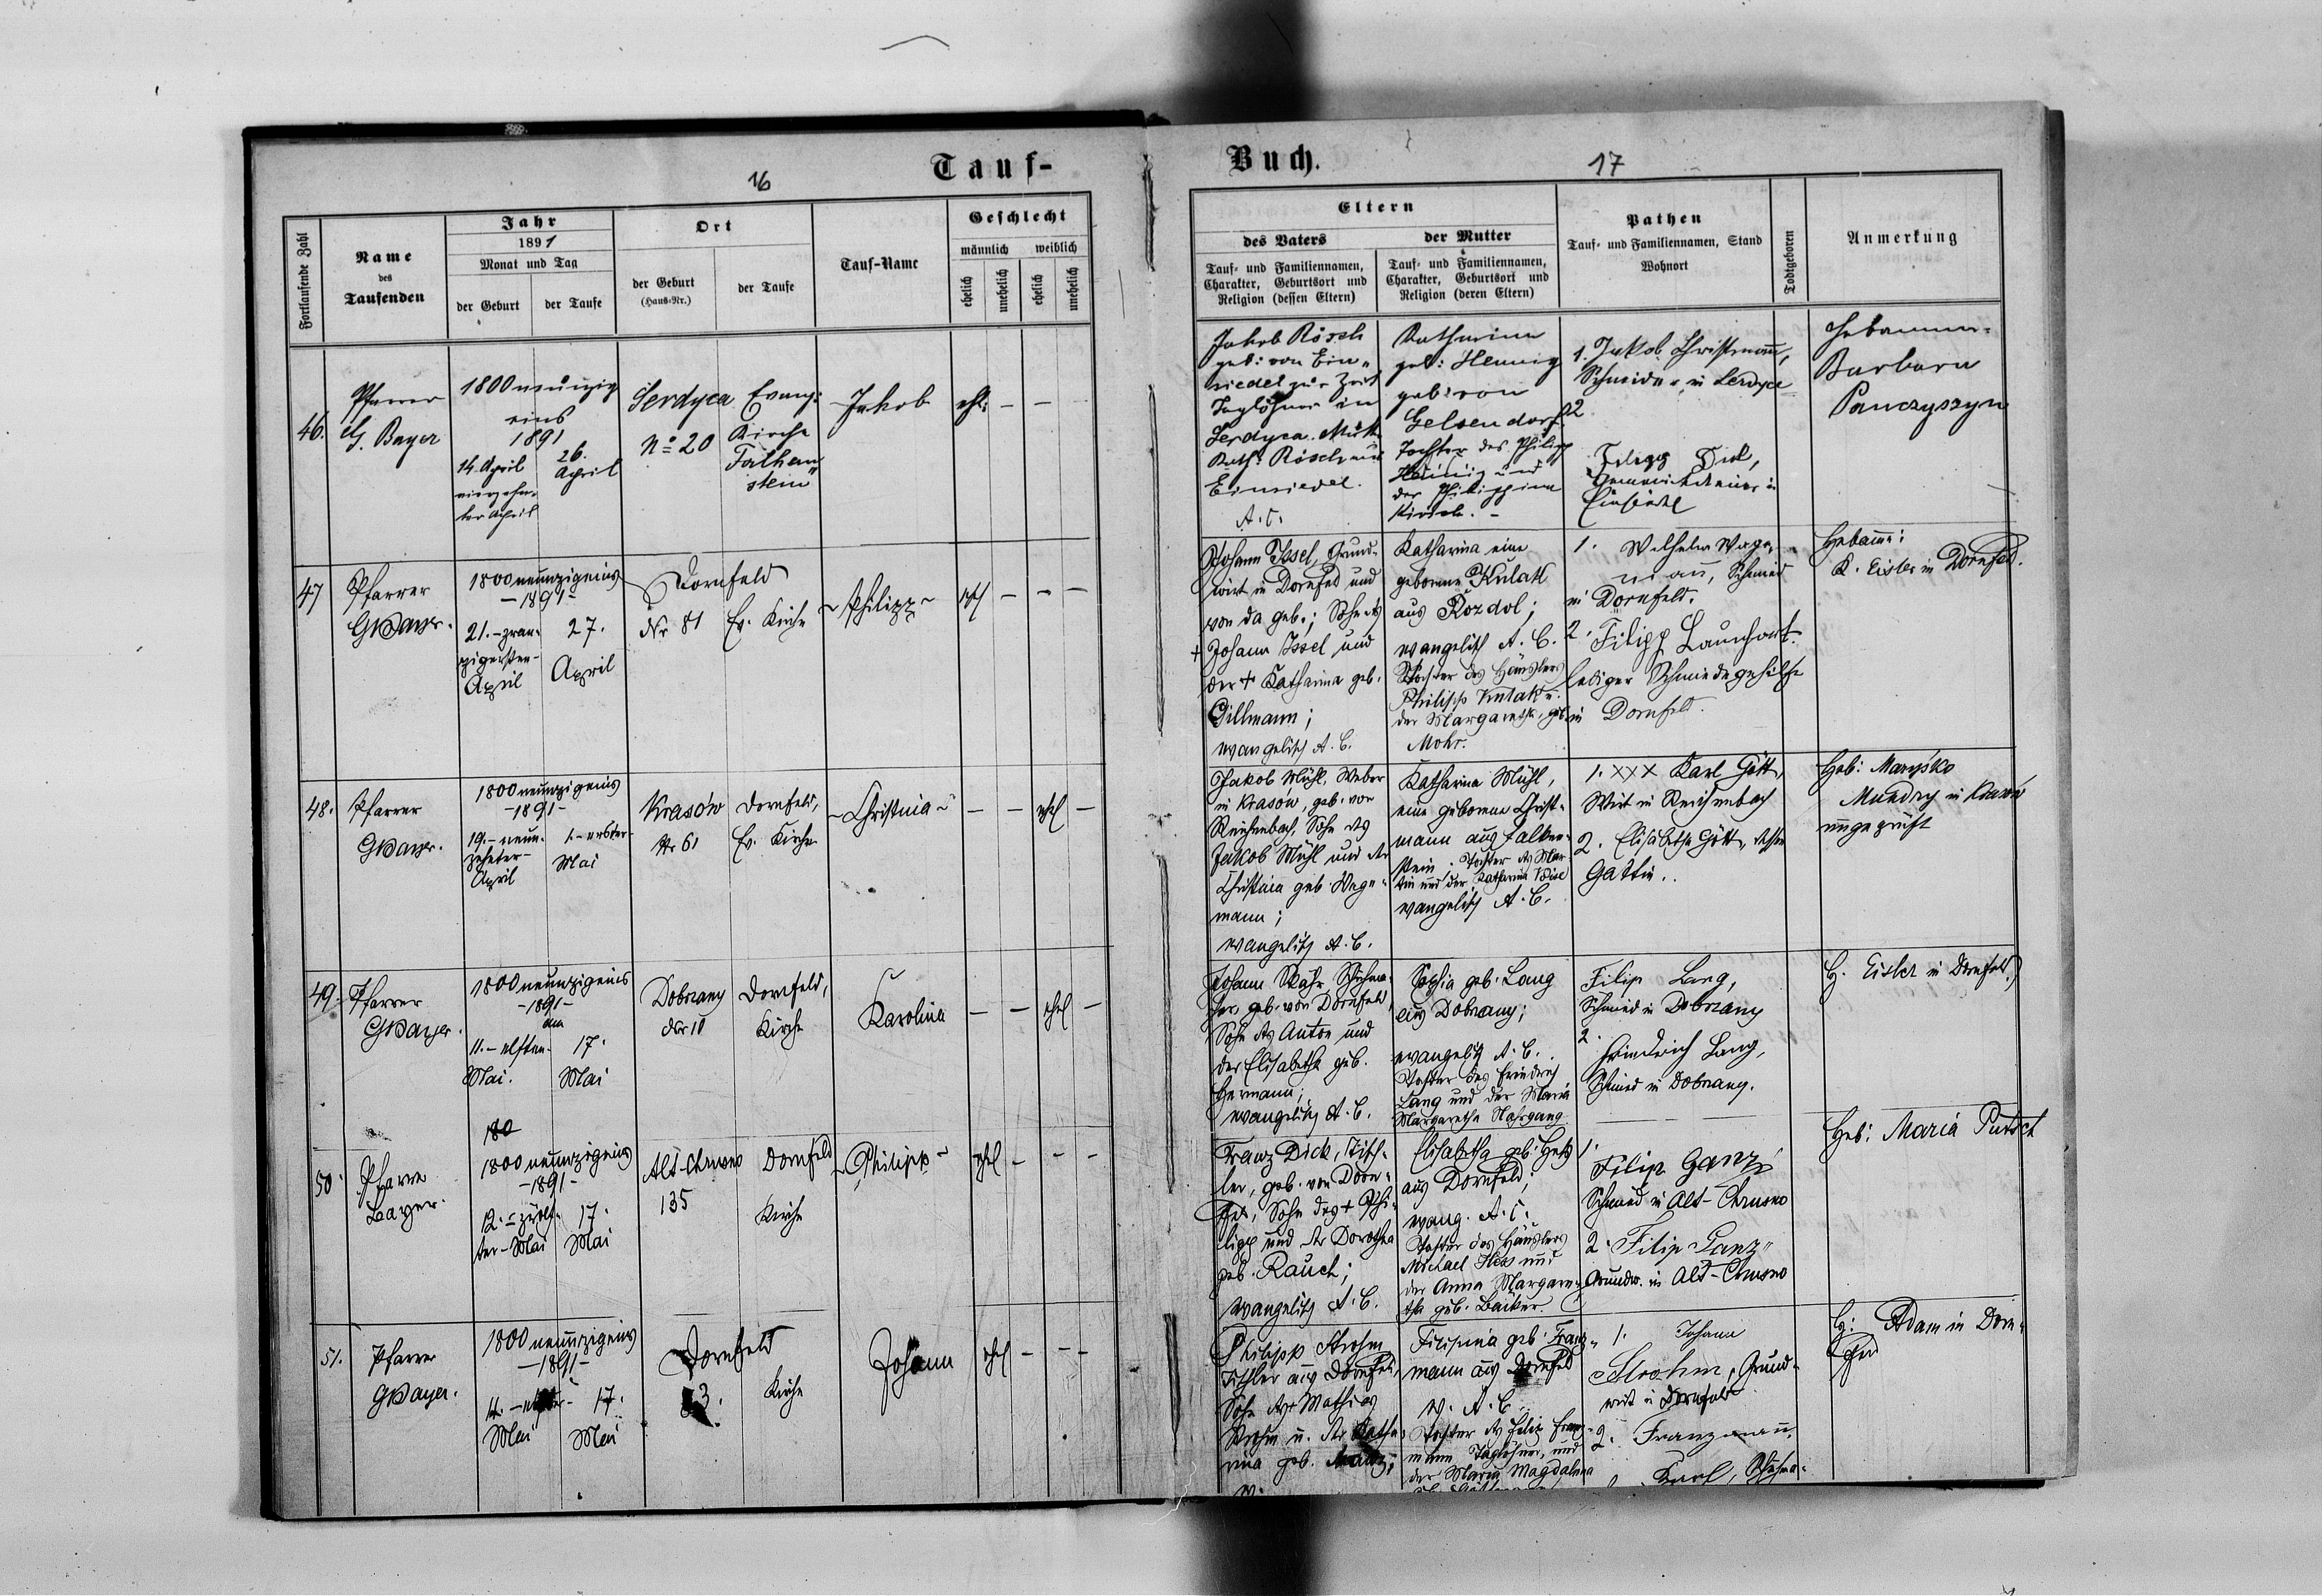 16
Tauf-
Fortlaufende Zahl
Name
des
Taufenden
Jahr
1891
Monat und Tag
der Geburt
der Taufe
Ort
der Geburt
(Haus-Nr.)
der Taufe
Tauf-Name
Geschlecht
männlich
weiblich
ehelich
unehelich
ehelich
unehelich
46.
Pfarrer
G. Bayer
1800 neunzig
eins
1891
14. April
vierzehn-
ter April
26.
April
Serdyca
No 20
Evang:
Kirche
Falken
stein
Jakob
ehl: — —
47
Pfarrer
GBayer.
1800 neunzigeins
— 1891 —
21. – zwan-
zigersten –
April
27.
April
Dornfeld
Nr 81
Ev. Kirche
~ Philipp ~
ehl — — —
48.
Pfarrer
GBayer.
1800 neunzigeins
— 1891 —
19. – neun-
zehnter –
April
1. – erster –
Mai
Krasów
Nr 61
Dornfeld,
Ev. Kirche
~ Christina ~
— — ehel —
49.
Pfarrer
GBayer.
1800 neunzigeins
— 1891 —
am
11. – elften –
Mai.
17.
Mai
Dobrzany
Nr 10
Dornfeld,
Kirche
Karolina
— — ehel —
180
50.
Pfarre
Bayer.
1800 neunzigeins
— 1891 —
12. – zwölf-
ter – Mai
17.
Mai
Alt-Chrusno
135
Dornfeld
Kirche
~ Philipp ~
ehel — — —
51.
Pfarrer
GBayer.
1800 neunzigeins
— 1891 —
14. –
Mai
17.
Mai
Dornfeld
Kirche
Johann
ehel — — —
Buch.
17
Eltern
des Vaters
der Mutter
Tauf- und Familiennamen,
Charakter, Geburtsort und
Religion (dessen Eltern)
Tauf- und Familiennamen,
Charakter, Geburtsort und
Religion (deren Eltern)
Pathen
Tauf- und Familiennamen, Stand
Wohnort
Todtgeboren
Anmerkung
Jakob Rösch
geb: von Ein-
siedel zur Zeit
Taglöhner in
Serdyca. Mutt.
Kath: Rösch aus
Einsiedel.
A. C.
Katharina
geb: Hennig
geb: von
Gelsendorf
Tochter des Philipp
Hennig und
der Philippina
Kirsch. –
1. Jakob Christmann,
Schneider in Serdyce
2
Filipp Diel,
Gemeindediener in
Einsiedel
Hebamme:
Barbara
Panczyszyn
Johann Issel, Grund-
wirt in Dornfeld und
von da geb.; Sohn des
+ Johann Issel und
der + Katharina geb.
Dillmann;
evangelisch A. C.
Katharina eine
geborene Kulak
aus Rozdol;
evangelisch A. C.
Tochter des Häuslers
Philipp Kulak u.
der Margaretha, geb.
Mohr.
1. Wilhelm Wage-
mann, Schmied
in Dornfeld.
2. Filipp Launhart
lediger Schmiedegehilfe
in Dornfeld.
Hebamme:
K. Eisler in Dornfeld.
Jakob Mühl, Weber
in Krasów, geb. von
Reichenbach, Sohn des
Jakob Mühl und der
Christina geb. Wage-
mann;
evangelisch A. C.
Katharina Mühl,
eine geborene Christ-
mann aus Falken-
stein. Tochter des Mar-
tin und der Katharina Weise
evangelisch A. C.
1. XXX Karl Gött,
Wirt in Reichenbach
2. Elisabetha Gött, dessen
Gattin.
Heb: Maryśka
Mundry in Krasów
ungeprüft
Johann Bähr, Schuhma-
cher, geb. von Dornfeld,
Sohn des Anton und
der Elisabetha geb.
Hermann;
evangelisch A. C.
Sophia geb. Lang
aus Dobrzany;
evangelisch A. C.
Tochter des Friedrich
Lang und der Maria
Margaretha Nahrgang
Filip Lang,
Schmied in Dobrzany
2.
Friedrich Lang,
Schmied in Dobrzany.
H. Eisler in Dornfeld.
Franz Dick, Tisch-
ler, geb. von Dorn-
feld, Sohn des + Phi-
lipp und der Dorothea
geb. Rauch;
evangelisch A. C.
Elisabetha geb. Hetz
aus Dornfeld;
evang. A. C.
Tochter des Häuslers
Michael Hetz und
der Anna Margare-
tha geb. Bäcker.
1.
Filip Ganz
Schmied in Alt-Chrusno
2. Filip Ganz
Grundw. in Alt-Chrusno
Heb: Maria Putsch
Philipp Strohm
Tischler aus Dornfeld,
Sohn des Mathias
Strohm u. der Katha-
rina geb. Manz;
Filipina geb. Franz-
mann aus Dornfeld
ev. A. C.
Tochter des Filip Franz-
mann Taglöhner, und
der Maria Magdalena
1. Johann
Strohm, Grund-
wirt in Dornfeld
2. Franzmann,
Karl, Schuhma-
H: Adam in Dorn-
feld